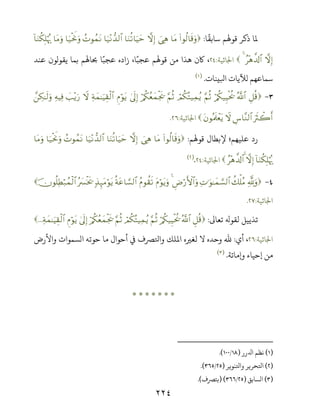 لما ذكر قولهم سابقًا: ﴿وَقَالُوا۟ مَا هِىَ إِلَّا حَيَاتُنَا ٱلدُّنْيَا نَمُوتُ وَنَحْيَا وَمَا يُهْلِكُنَآ
إِلَّا ٱلدَّهْرُ ۚ ﴾ الجاثية:٢٤، كان هذا من قولهم عجبًا، زاده عجبًا بحالهم بما يقولون عند
سماعهم للآيات البينات. (١)
٣- ﴿قُلِ ٱللَّهُ يُحْيِيكُمْ ثُمَّ يُمِيتُكُمْ ثُمَّ يَجْمَعُكُمْ إِلَىٰ يَوْمِ ٱلْقِيَـٰمَةِ لَا رَيْبَ فِيهِ وَلَـٰكِنَّ
أَكْثَرَ ٱلنَّاسِ لَا يَعْلَمُونَ ﴾ الجاثية:٢٦.
رد عليهم؛ لإبطال قولهم: ﴿وَقَالُوا۟ مَا هِىَ إِلَّا حَيَاتُنَا ٱلدُّنْيَا نَمُوتُ وَنَحْيَا وَمَا
يُهْلِكُنَآ إِلَّا ٱلدَّهْرُ ۚ ﴾ الجاثية:٢٤.(٢)
٤- ﴿وَلِلَّهِ مُلْكُ ٱلسَّمَـٰوَٰتِ وَٱلْأَرْضِ ۚ وَيَوْمَ تَقُومُ ٱلسَّاعَةُ يَوْمَئِذٍ يَخْسَرُ ٱلْمُبْطِلُونَ﴾
الجاثية:٢٧.
تذييل لقوله تعالى: ﴿قُلِ ٱللَّهُ يُحْيِيكُمْ ثُمَّ يُمِيتُكُمْ ثُمَّ يَجْمَعُكُمْ إِلَىٰ يَوْمِ ٱلْقِيَـٰمَةِ...﴾
الجاثية:٢٦، أي: لله وحده لا لغيره الملك والتصرف في أحوال ما حوته السموات والأرض
من إحياء وإماتة. (٣)
* * * * * * *
(١) نظم الدرر (١٨/ ١٠٠).
(٢) التحرير والتنوير (٢٥/ ٣٦٥).
(٣) السابق (٢٥/ ٣٦٦) (بتصرف).
٢٢٤